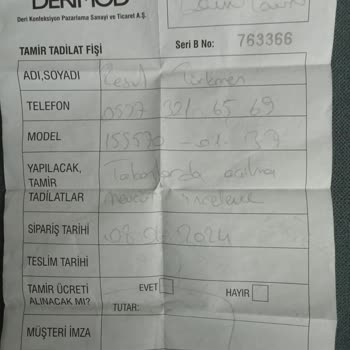 DERİMOD
Deri Konfeksiyon Pazarlama Sanayi ve Ticaret A.Ş.
TAMİR TADİLAT FİŞİ
Seri B No: 763366
ADI,SOYADI Resul Türkmen
TELEFON 0537 321 65 69
MODEL 155570 -01 37
YAPILACAK, TAMİR TADİLATLAR Tabanlarda açılma mevcut inceleme
SİPARİŞ TARİHİ 2024
TESLİM TARİHİ
TAMİR ÜCRETİ ALINACAK MI? EVET HAYIR
TUTAR:
MÜŞTERİ İMZA